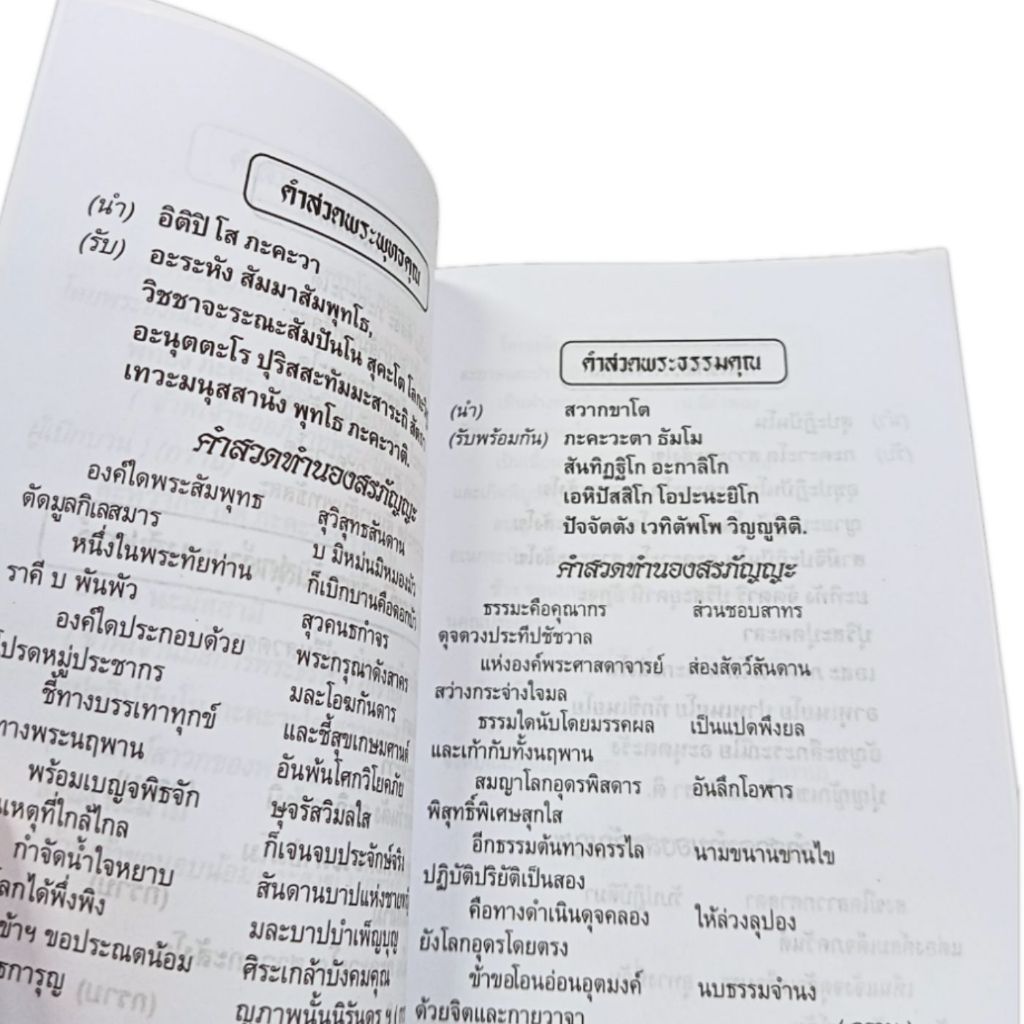 คำสวดพระพุทธคุณ
(นำ) อิติปิ โส ภะคะวา
(รับ) อะระหัง สัมมาสัมพุทโธ,
วิชชาจะระณะสัมปันโน สุคะโต
อะนุตตะโร ปุริสสะทัมมะสาระถิ
เทวะมนุสสานัง พุทโธ ภะคะวาติ.
คำสวดทำนองสรภัญญะ
องค์ใดพระสัมพุทธ สุวิสุทธสันดาน
ตัดมูลกิเลสมาร บ มิหม่นมิหมองมัว
หนึ่งในพระทัยท่าน ก็เบิกบานคือดอกบัว
ราคี บ พันพัว สุวคนธกำจร
องค์ใดประกอบด้วย พระกรุณาดังสาคร
โปรดหมู่ประชากร มละโอฆกันดาร
ชี้ทางบรรเทาทุกข์ และชี้สุขเกษมศานต์
ทางพระนฤพาน อันพ้นโศกวิโยคภัย
พร้อมเบญจพิธจัก ษุจรัสวิมลใส
เหตุที่ใกล้ไกล ก็เจนจบประจักษ์จริง
กำจัดน้ำใจหยาบ สันดานบาปแห่งชาย
โลกได้พึ่งพิง มละบาปบำเพ็ญบุญ
ข้าฯ ขอประณตน้อม ศิระเกล้าบังคมคุณ
การุญ ญภาพนั้นนิรันดร ฯ
คำสวดพระธรรมคุณ
(นำ) สวากขาโต
(รับพร้อมกัน) ภะคะวะตา ธัมโม
สันทิฏฐิโก อะกาลิโก
เอหิปัสสิโก โอปะนะยิโก
ปัจจัตตัง เวทิตัพโพ วิญญูหิติ.
คำสวดทำนองสรภัญญะ
ธรรมะคือคุณากร ส่วนชอบสาทร
ดุจดวงประทีปชัชวาล
แห่งองค์พระศาสดาจารย์ ส่องสัตว์สันดาน
สว่างกระจ่างใจมล
ธรรมใดนับโดยมรรคผล เป็นแปดพึงยล
และเก้ากับทั้งนฤพาน
สมญาโลกอุดรพิสดาร อันลึกโอฬาร
พิสุทธิ์พิเศษสุกใส
อีกธรรมต้นทางครรไล นามขนานขานไข
ปฏิบัติปริยัติเป็นสอง
คือทางดำเนินดุจคลอง ให้ล่วงลุปอง
ยังโลกอุดรโดยตรง
ข้าขอโอนอ่อนอุตมงค์ นบธรรมจำนง
ด้วยจิตและกายวาจา